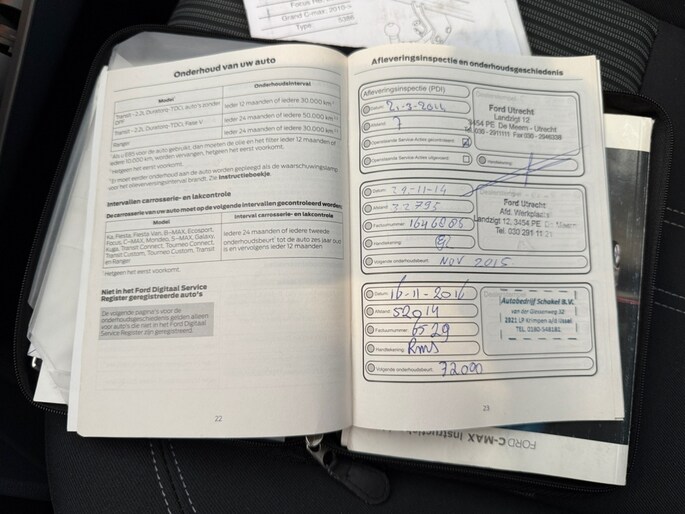 Focus Ne
Grand C-max: 2010-
Type: 5386
Onderhoud van uw auto
Model Onderhoudsinterval
Transit - 2.2L Duratorq-TDCi, auto's zonder DPF Ieder 12 maanden of iedere 30.000 km
Transit - 2.2L Duratorq-TDCi, Fase V Ieder 24 maanden of iedere 50.000 km
Ranger Ieder 24 maanden of iedere 30.000 km
Als u E85 voor de auto gebruikt, dan moeten de olie en het filter ieder 12 maanden of
iedere 10.000 km, worden vervangen, hetgeen het eerst voorkomt.
Hetgeen het eerst voorkomt.
Er moet eerder onderhoud aan de auto worden gepleegd als de waarschuwingslamp
voor het olieverversingsinterval brandt. Zie Instructieboekje.
Intervallen carrosserie- en lakcontrole
De carrosserie van uw auto moet op de volgende intervallen gecontroleerd worden:
Model Interval carrosserie- en lakcontrole
Ka, Fiesta, Fiesta Van, B-MAX, Ecosport,
Focus, C-MAX, Mondeo, S-MAX, Galaxy,
Kuga, Transit Connect, Tourneo Connect,
Transit Custom, Tourneo Custom, Transit
en Ranger
Iedere 24 maanden of iedere tweede
onderhoudsbeurt tot de auto zes jaar oud
is en vervolgens ieder 12 maanden
Hetgeen het eerst voorkomt.
Niet in het Ford Digitaal Service
Register geregistreerde auto's
De volgende pagina's voor de
onderhoudsgeschiedenis gelden alleen
voor auto's die niet in het Ford Digitaal
Service Register zijn geregistreerd.
22
Afleveringsinspectie en onderhoudsgeschiedenis
Afleveringsinspectie (PDI)
Datum:
Afstand: 7
Openstaande Service-Acties gecontroleerd:
Openstaande Service-Acties uitgevoerd:
Ford Utrecht
Landzigt 12
3454 PE De Meern - Utrecht
Handtekening:
Datum: 29-11-14
Afstand: 22795
Factuurnummer: 1646885
Handtekening:
Volgende onderhoudsbeurt: NOV 2015
Ford Utrecht
Afd. Werkplaats
Landzigt 12, 3454 PE De Meern
Tel. 030 291 11 21
Datum: 16-11-2016
Afstand: 52914
Factuurnummer: 6529
Handtekening: Rms
Volgende onderhoudsbeurt: 72000
Autobedrijf Schakel B.V.
van der Giessenweg 32
2921 LP Krimpen a/d IJssel
TEL. 0180-548181
23
FORD C-MAX Instructie